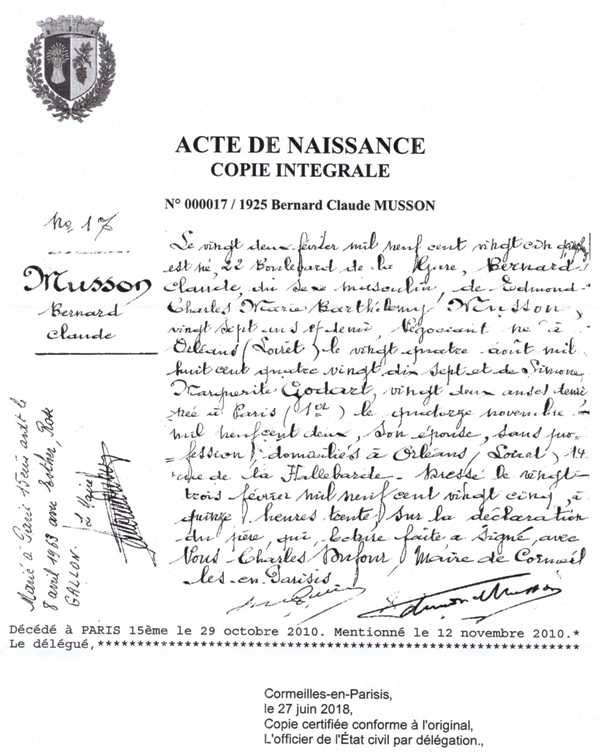 ACTE DE NAISSANCE
COPIE INTEGRALE
N° 000017 / 1925 Bernard Claude MUSSON
No 17
Musson
Bernard
Claude
Le vingt deux février mil neuf cent vingt cinq
est né, 22 Boulevard de la Gare, Bernard
Claude, du sexe masculin, de Edmond
Charles Marie Barthélemy Musson,
vingt sept ans et demi, Négociant né à
Orléans (Loiret) le vingt quatre août mil
huit cent quatre vingt dix sept et de Simone
Marguerite Godart, vingt deux ans et demi
née à Paris le quatorze novembre
mil neuf cent deux, son épouse, sans pro-
fession, domiciliés à Orléans (Loiret), 14
rue de la Hallebarde. Dressé le vingt
trois février mil neuf cent vingt cinq, à
quinze heures trente, sur la déclaration
du père, qui, lecture faite a signé avec
Nous Charles Dufour, Maire de Corneil
les-en-Parisis
Marié à Paris 15ème arrdt le
8 avril 1963 avec Esther, Rose
GALLON.
Le Maire
Edmond Musson
Décédé à PARIS 15ème le 29 octobre 2010. Mentionné le 12 novembre 2010.*
Le délégué,************************************************************
Cormeilles-en-Parisis,
le 27 juin 2018,
Copie certifiée conforme à l'original,
L'officier de l'État civil par délégation.,